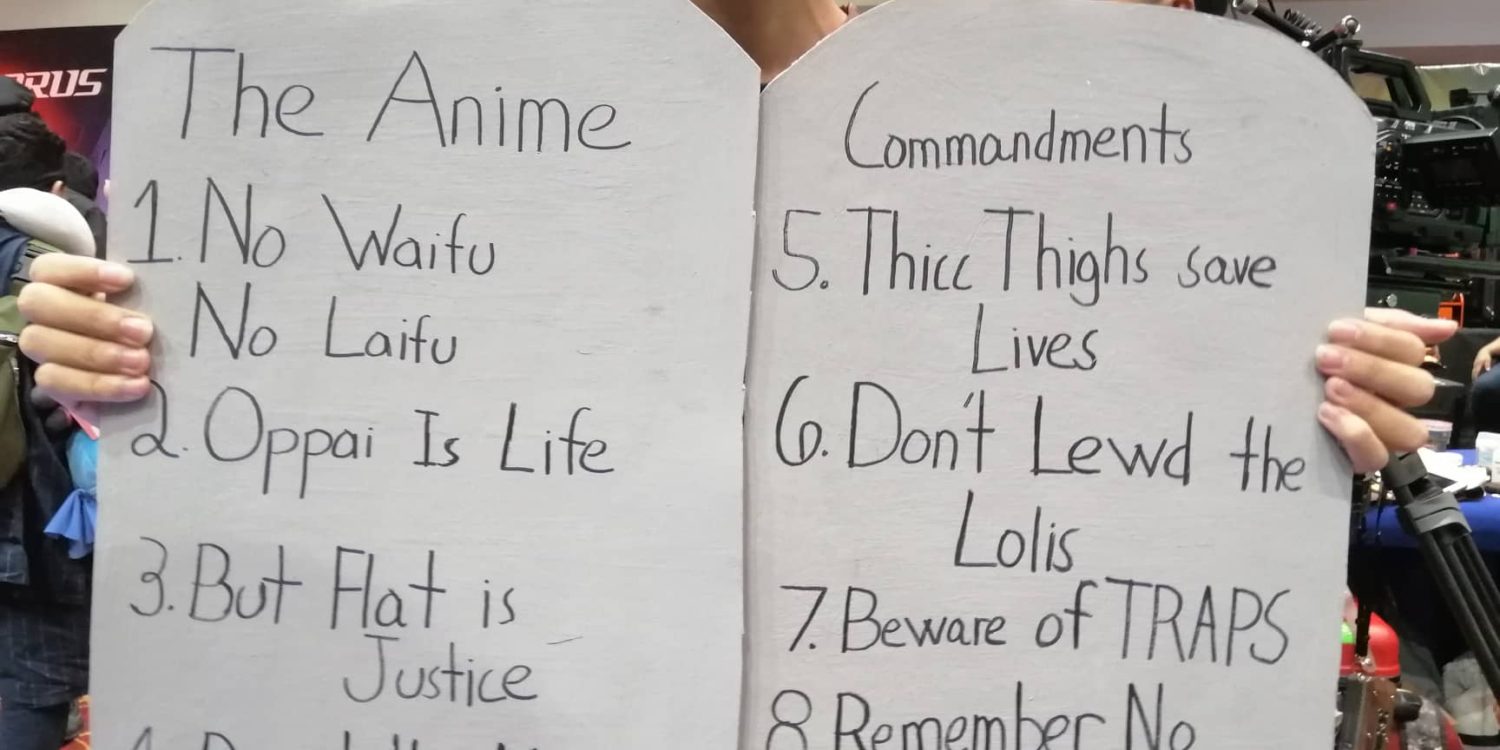 The Anime
1. No Waifu
No Laifu
2. Oppai Is Life
3. But Flat is
Justice
Commandments
5. Thicc Thighs save
Lives
6. Don't Lewd the
Lolis
7. Beware of TRAPS
8 Remember No